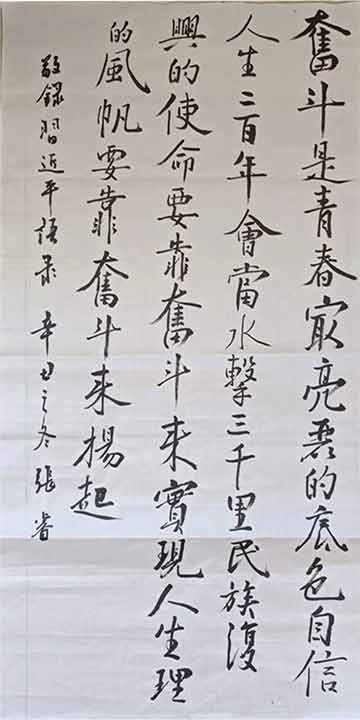 奮斗是青春最亮麗的底色自信
人生二百年會當水擊三千里民族復
興的使命要靠奮斗來實現人生理
的風帆要靠奮斗來揚起
敬錄習近平語录 辛丑之冬張睿